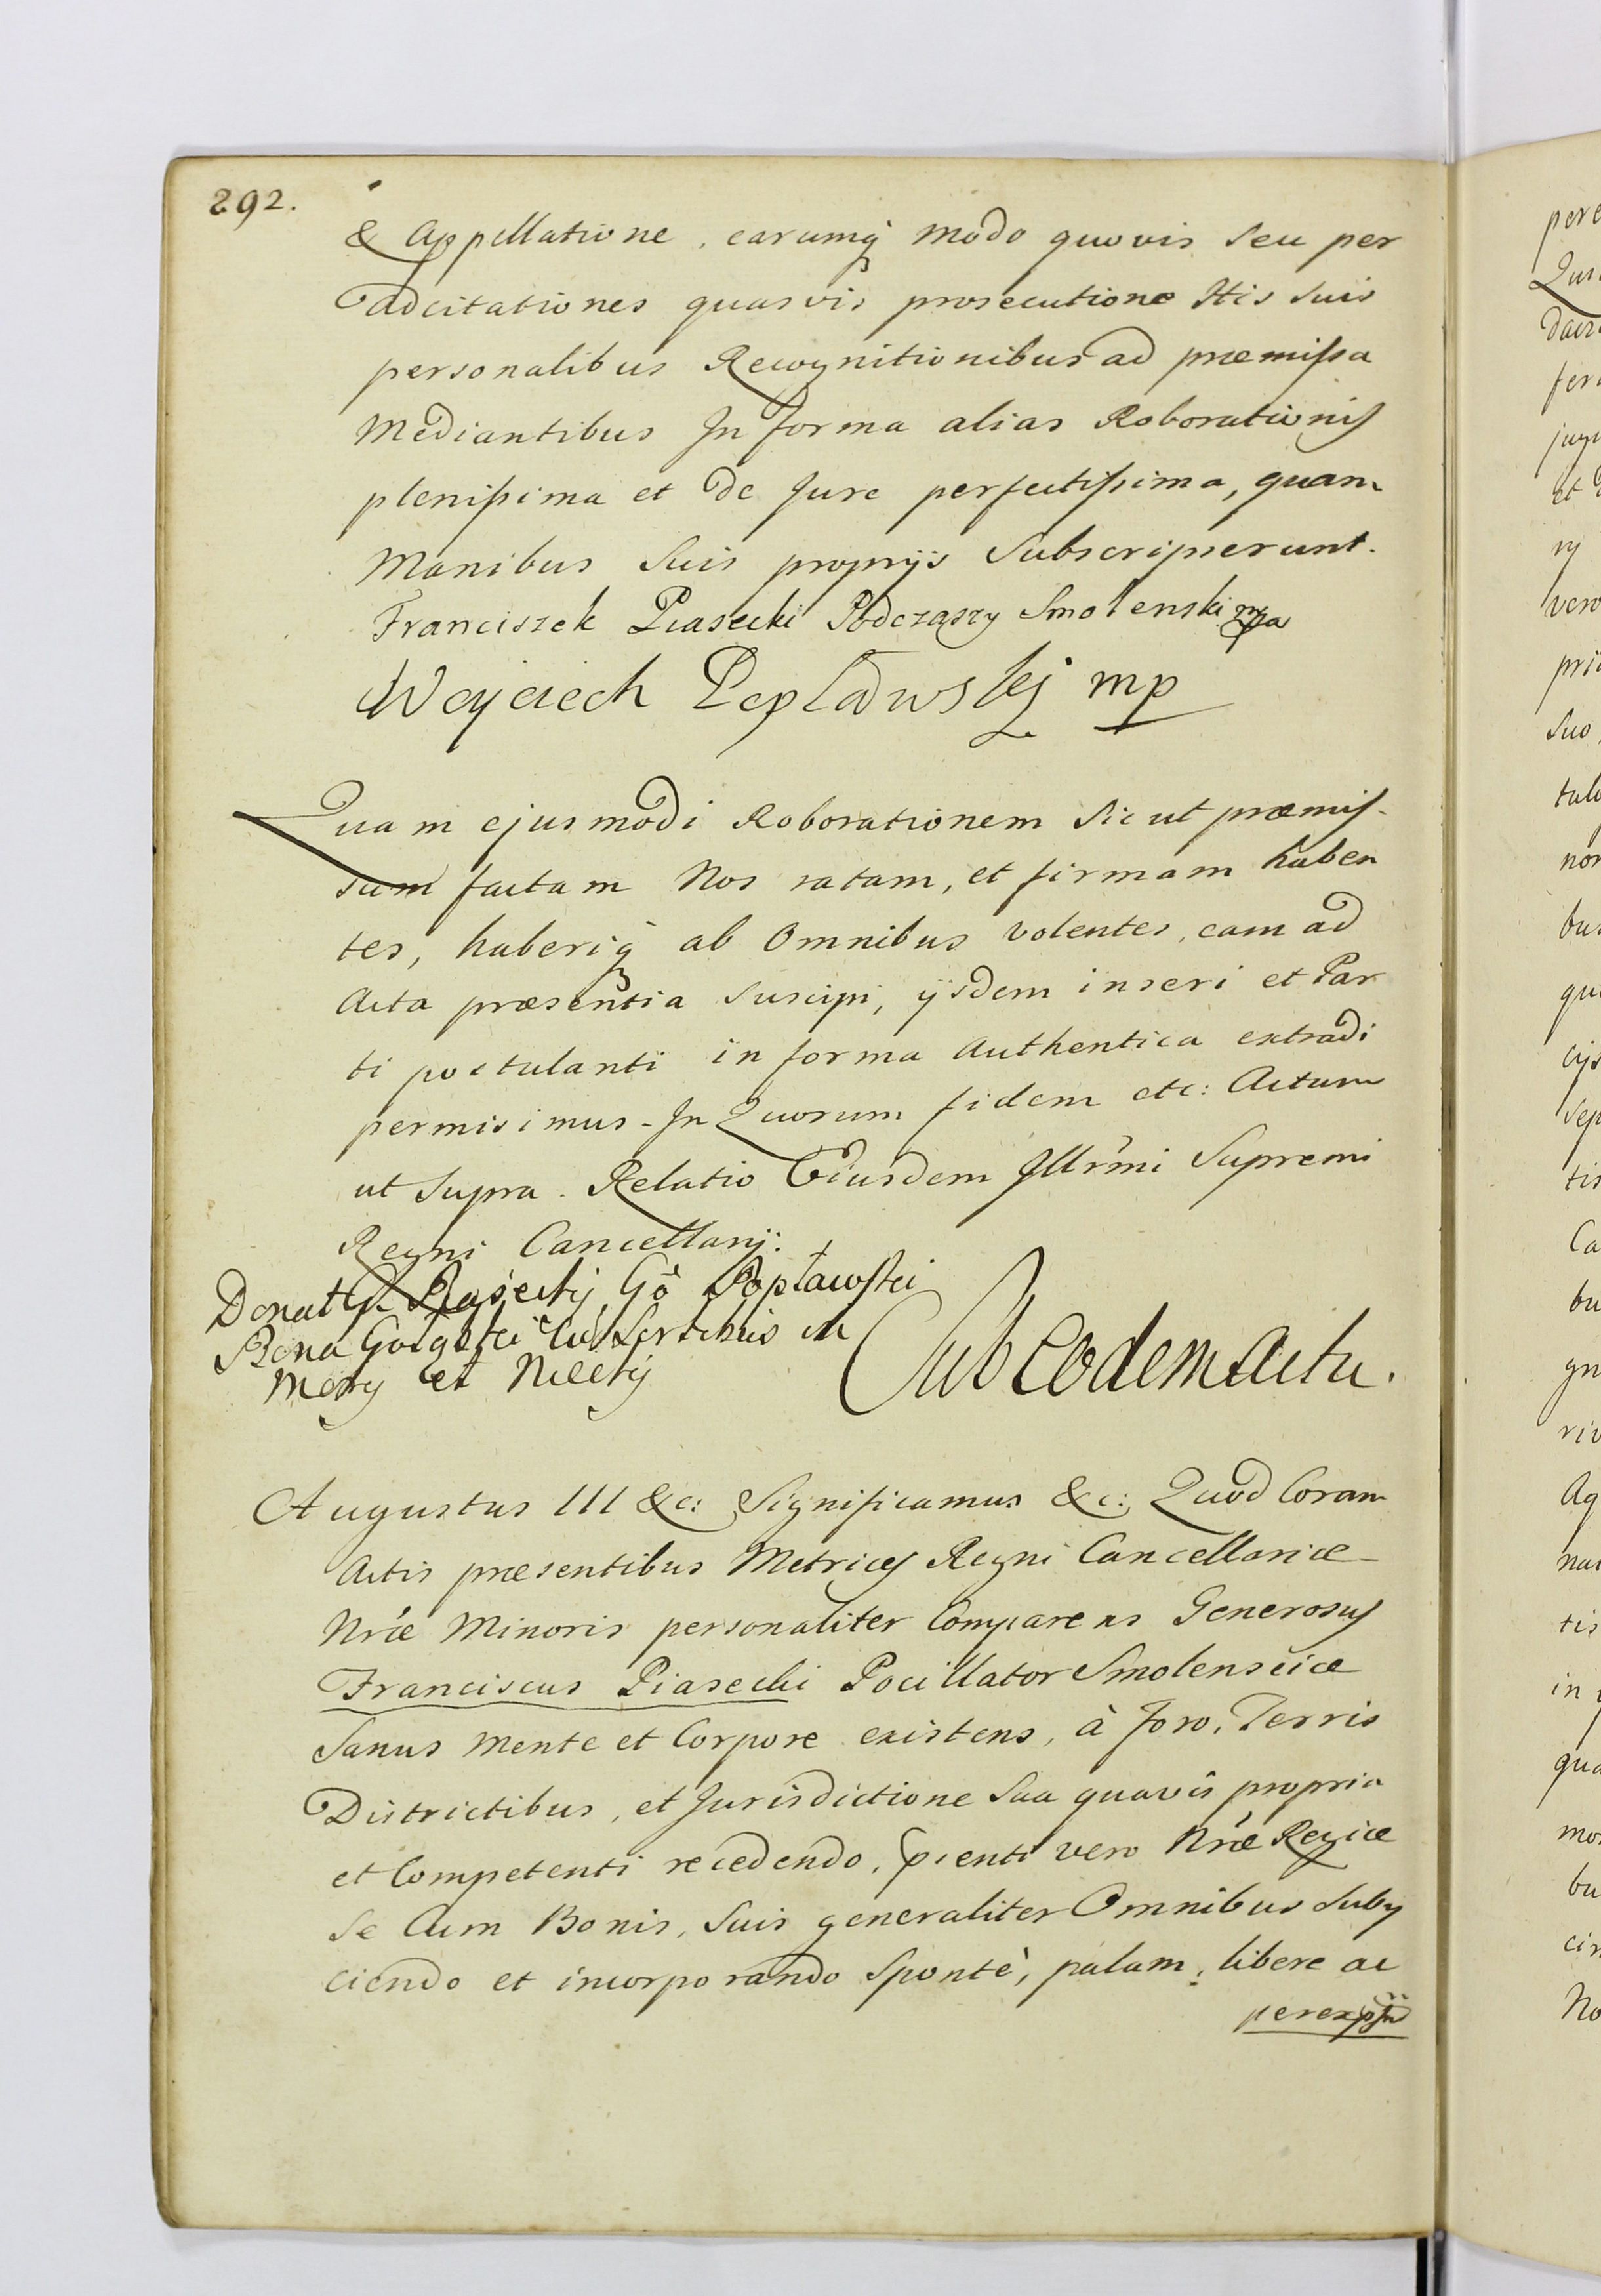 292.
& Appellatione, earumq modo quovis seu per
adcitationes quasvis prosecutione Itis suis
personalibus Recognitionibus ad præmissa
Mediantibus In forma alias Roborationis
plenissima et de Jure perfectissima, quam
Manibus Suis proprÿs Subscripserunt.
Franciszek Piasecki Podczaszy Smolenski mpa
Woyciech Poplawskj mp
Quam ejusmodi Roborationem Sic ut præmis-
sum factam Nos ratam, et firmam haben
tes, haberiq ab Omnibus volentes, eam ad
Acta præsentia suscipi, ÿsdem inseri et Par
ti postulanti in forma Authentica extradi
permisimus. In Quorum fidem etc: Actum
ut Supra. Relatio Eiusdem Illrmi Supremi
Regni Cancellarÿ.
Donat G. Piaseckj Gö Popławski
Bona
Sub Eodem Actu.
et
Augustus III &c: Significamus &c: Quod Coram
Actis præsentibus Metrices Regni Cancellariæ
Nræ Minoris personaliter Comparens Generosus
Franciscus Piasecki Pocillator Smolensciæ
Sanus mente et Corpore existens, à Foro, Terris
Districtibus, et Jurisdictione Sua quavis propria
et Competenti recedendo, pienti vero Nræ Regiæ
se Cum Bonis, Suis generaliter Omnibus suby
ciendo et incorporando Spontè, palam, libere ac